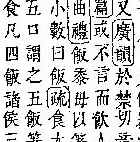 又廣韻於禁切
篇或不言而飲
曲禮飯黍毋以
小數曰飯疏食
五口謂之五飯
食凡四飯諸侯三